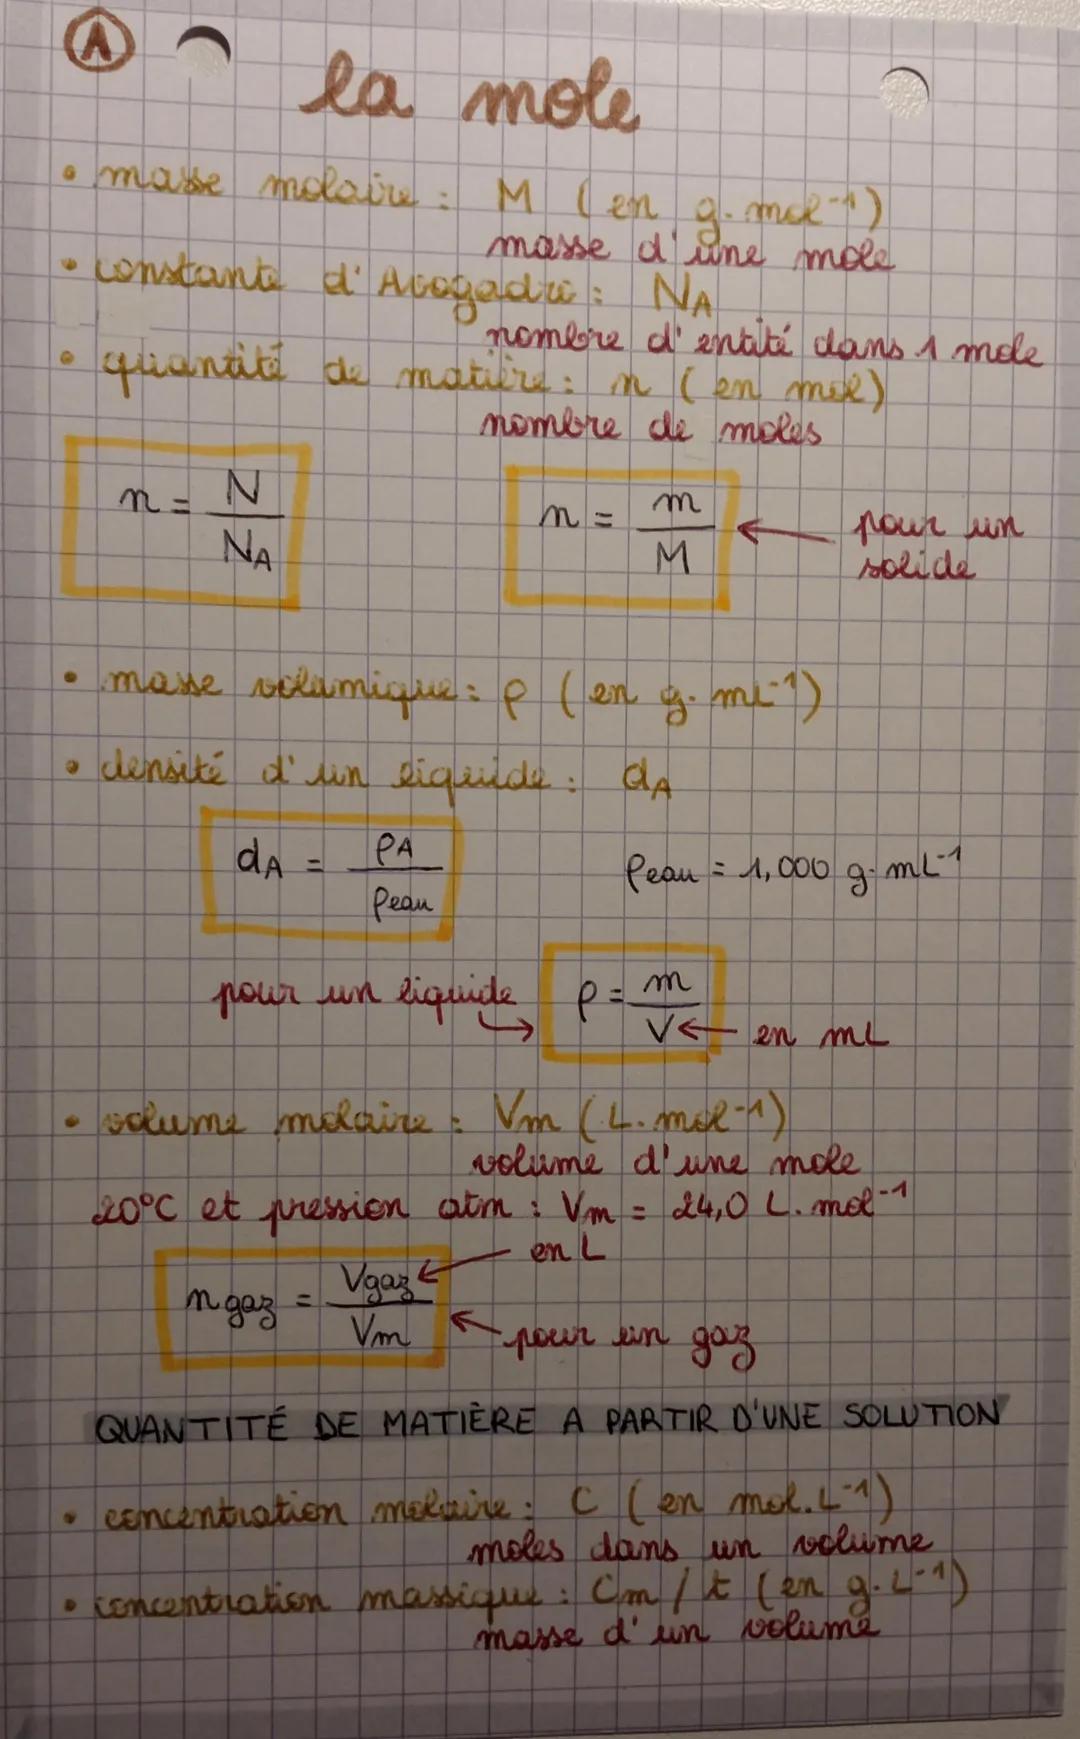 A
la mole
• masse molaire : M (en g.mol⁻¹)
masse d'une mole
• constante d'Avogadro : NA
nombre d'entité dans 1 mole
• quantité de matière : n (en mol)
nombre de moles
n = N / NA
n = m / M ← pour un
solide
• masse volumique : ρ (en g.mL⁻¹)
• densité d'un liquide : dA
dA = ρA / ρeau
ρeau = 1,000 g.mL⁻¹
pour un liquide → ρ = m / V ← en mL
• volume molaire : Vm (L.mol⁻¹)
volume d'une mole
20°C et pression atm : Vm = 24,0 L.mol⁻¹
n gaz = Vgaz / Vm
← en L
← pour un gaz
QUANTITÉ DE MATIÈRE A PARTIR D'UNE SOLUTION
• concentration molaire : C (en mol.L⁻¹)
moles dans un volume
• concentration massique : Cm / t (en g.L⁻¹)
masse d'un volume